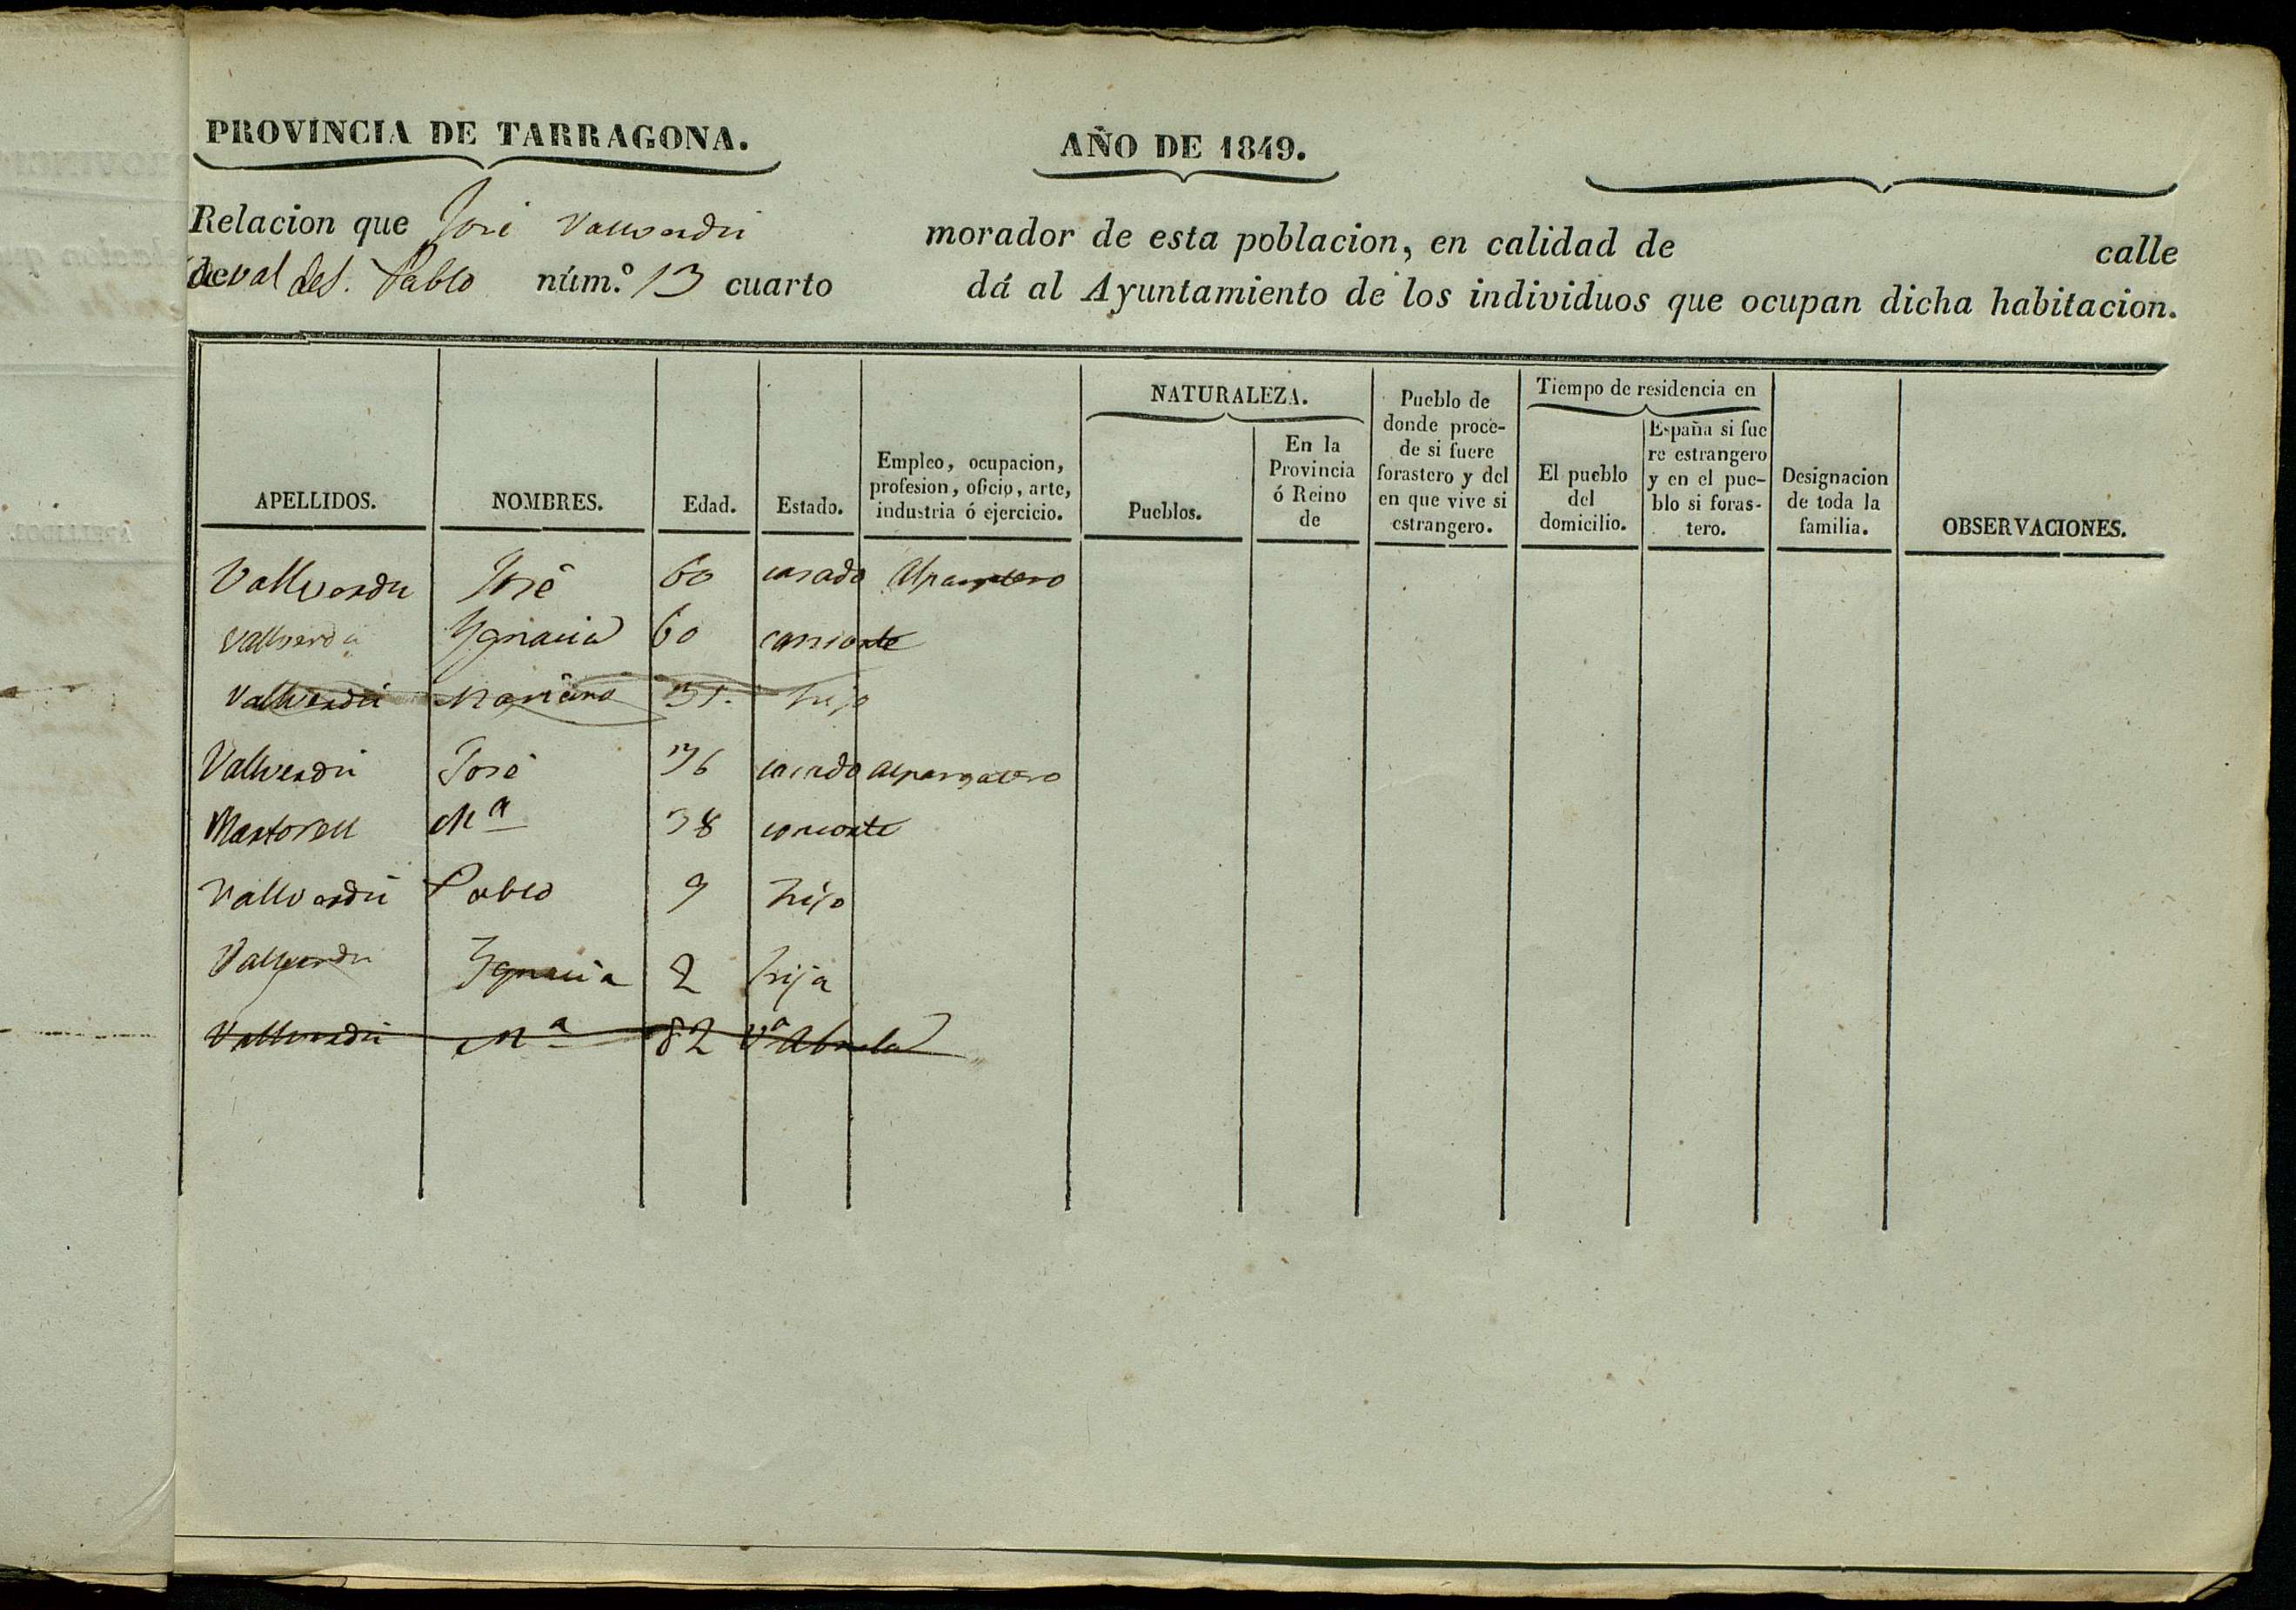 PROVINCIA DE TARRAGONA.
AÑO DE 1849.
Relacion que José Vallverdú morador de esta poblacion, en calidad de calle
de val de S. Pablo núm.º 13 cuarto dá al Ayuntamiento de los individuos que ocupan dicha habitacion.
APELLIDOS.
NOMBRES.
Edad.
Estado.
Empleo, ocupacion,
profesion, oficio, arte,
industria ó ejercicio.
NATURALEZA.
Pueblos.
En la
Provincia
ó Reino
de
Pueblo de
donde proce-
de si fuere
forastero y del
en que vive si
estrangero.
Tiempo de residencia en
El pueblo
del
domicilio.
España si fue
re estrangero
y en el pue-
blo si foras-
tero.
Designacion
de toda la
familia.
OBSERVACIONES.
Vallverdu José 60 casado Alpargatero
Vallverdú Ygnacia 60 consorte
Vallverdú Mariano hijo
Vallverdú José 36 casado Alpargatero
Martorell Mª 38 consorte
Vallverdú Pablo 9 hijo
Vallverdú Ygnacia 2 hija
Vallverdú Mª 82 Vª Abuela